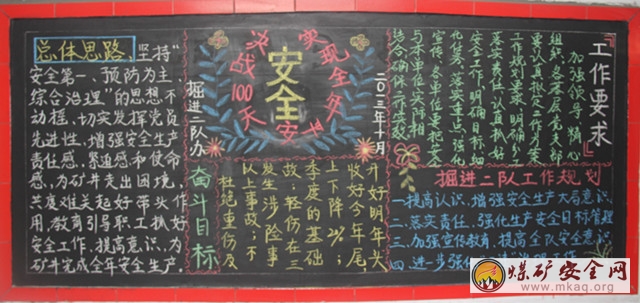 总体思路、坚持“
安全第一、预防为主、
综合治理”的思想不
动摇，切实发挥党员
先进性，增强安全生产
责任感，紧迫感和使命
感，为矿井走出困境，
共度难关起好带头作
用，教育引导职工抓好
安全工作，提高意识，为
矿井完成全年安全生产。
决战100天
实现全年安
安全
掘进二队办
年十月
奋斗目标
杜绝重伤及
以上事故；不
发生涉险事
故；轻伤在三
季度的基础
上下降2%；
收好今年尾
开好明年头
工作要求
加强领导，精心
组织，各基层党支部
要认真拟定工作方案
工作规划要求，明确
落实责任，认真抓好
安全工作，明确目标，细
化任务，落实责任，强化
宣传，各单位要把
与本单位实际相
结合，确保工作实效
掘进二队工作规划
一、提高认识，增强安全生产大局意识
二、落实责任，强化生产安全目标管理
三、加强宣传教育，提高全队安全意识
四、进一步强
煤矿安全网
www.mkaq.org